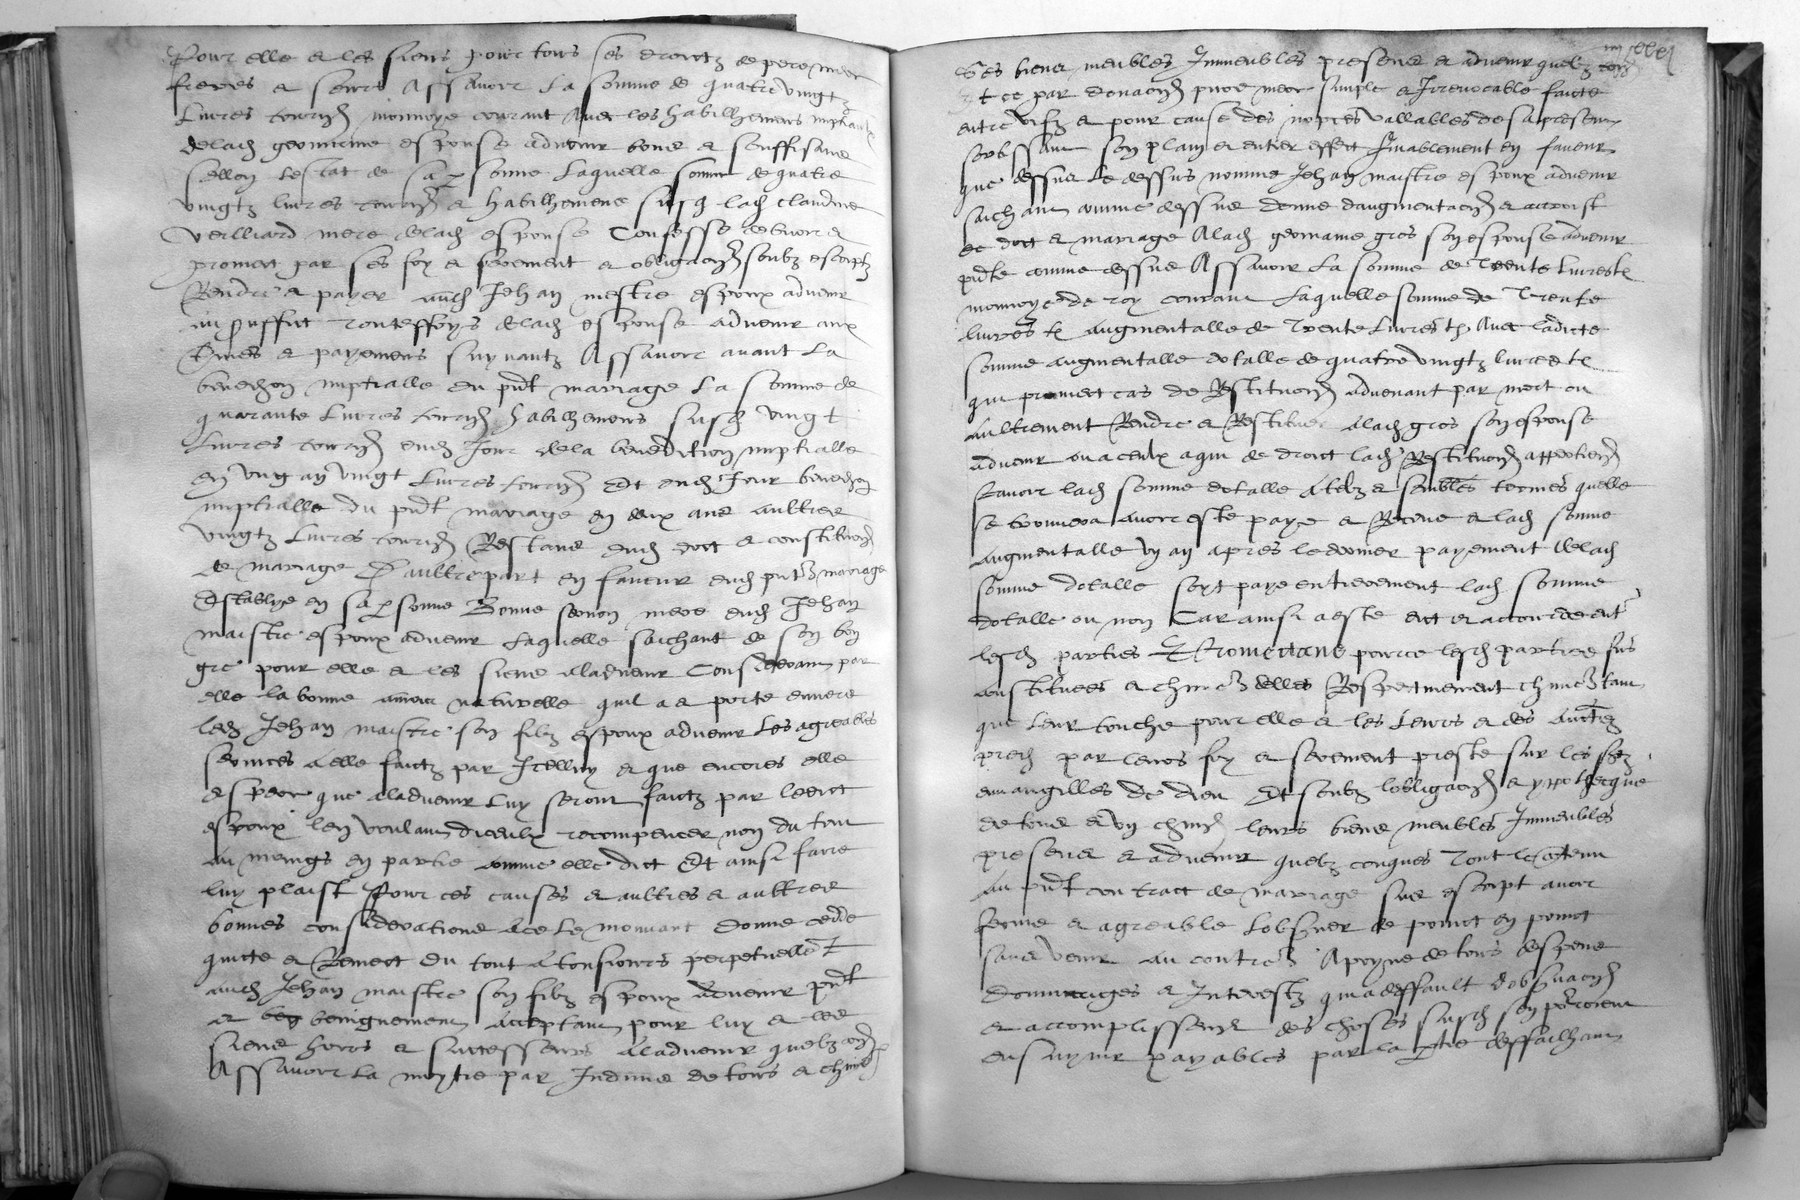 Pour elle et les siens pour tous ses droictz de pere mere
freres et seurs Assavoir La somme de quatre vingtz
Livres tourn monnoye courant Avec les habilhemens nuptiaulx
delad geoname esponse advenir bone et souffisans
sellon lestat de sa personne Laquelle somme de quatre
vingtz livres tourn et habilhemens susd lad claudine
Veilliard mere delad esponse Confesse debvoir et
promect par ses foy et serement et obligacion soubz escriptz
Rendre et payer aud Jehan mestre espoux advenir
au prouffict toutesfoys delad esponse advenir aux
termes et payemens suyvantz Assavoir avant La
benedon nuptialle du pnt mariage La somme de
quarante Livres tourn habilhemens susd vingt
Livres tourn dud Jour dela benedition nuptialle
en ung an vingt Livres tourn Et dud Jour benedon
nuptialle du pnt mariage en deux ans aultres
Vingtz Livres tourn Restans dud dot et constitution
de mariage D'aultre part en faveur dud pnt mariage
Establye en sa personne Bonne mere dud Jehan
maistre espoux advenir Laquelle saichant de son bon
gre pour elle et les siens aladvenir Considerant par
elle la bonne amour naturelle quil a et porte envers
led Jehan maistre son filz espoux advenir Les agreables
services a elle faictz par Icelluy et que encores elle
espere que aladvenir Luy seront faictz par ledict
espoux len voulant diceulx recompencer non du tout
au moings en partie comme elle dict Et ainsi faire
luy plaist Pour ces causes et aultres et aultres
bonnes considerations Ace Le mouvant donne cedde
quicte et Remect du tout A tousiours perpetuellet
aud Jehan maistre son filz espoux advenir pnt
et benignement Acceptant pour luy et les
siens hoirs et successeurs Aladvenir quelzconq
Assavoir La moytie par Indivis de tous et chūns
Ses biens meubles Immeubles presens et advenir quelz conq
Et ce par donacion pure mere simple et Irrevocable faicte
entre vifz et pour cause des nopces vallables des apresent
sortissant son plain et entier effect Inviablement en faveur
que dessus Le dessus nomme Jehan maistre espoux advenir
saichant comme dessus donne daugmentacion et accroist
de dot et mariage Alad geoname gros son esponse advenir
pnte comme dessus Assavoir La somme de Trente Livres tz
monnoye de roy courant Laquelle somme de Trente
livres tz augmentalle de Trente Livres tz Avec ladicte
somme augmentalle dotalle de quatre vingtz livres tz
qui promect cas de Restitucion advenant par mort ou
aultrement Rendre et Restituer alad gros son esponse
advenir ou a ceulx a qui de droict lad Restitucion appertiend
Scavoir lad somme dotalle A telz et semblēs termes quelle
se trouvera avoir este paye et Receue et lad somme
Augmentalle ung an apres le dernier payement delad
somme dotalle soyt paye entierement lad somme
dotalle ou non Car ainsi a este dict et accorde entre
lesd parties Promectans pource lesd parties sus
constituees et chūne delles Respectivement chūne tant
que leur touche pour elle et les Leurs et des
pred par leurs foy et serement preste sur les stz
euvangilles de dieu Et soubz lobligacion et yppothecque
de tous et ung chūn leurs biens meubles Immeubles
presens et advenir quelz conques Tout le contenu
au pnt contract de mariage sus escript avoir
ferme et agreable Lobsver de poinct en poinct
sans venir au contrē Apoyne de tous despens
dommaiges et Interestz qui a deffault dobsvacion
et accomplissent des choses susd sen pourroient
ensuyvir payables par la ptie deffailhant